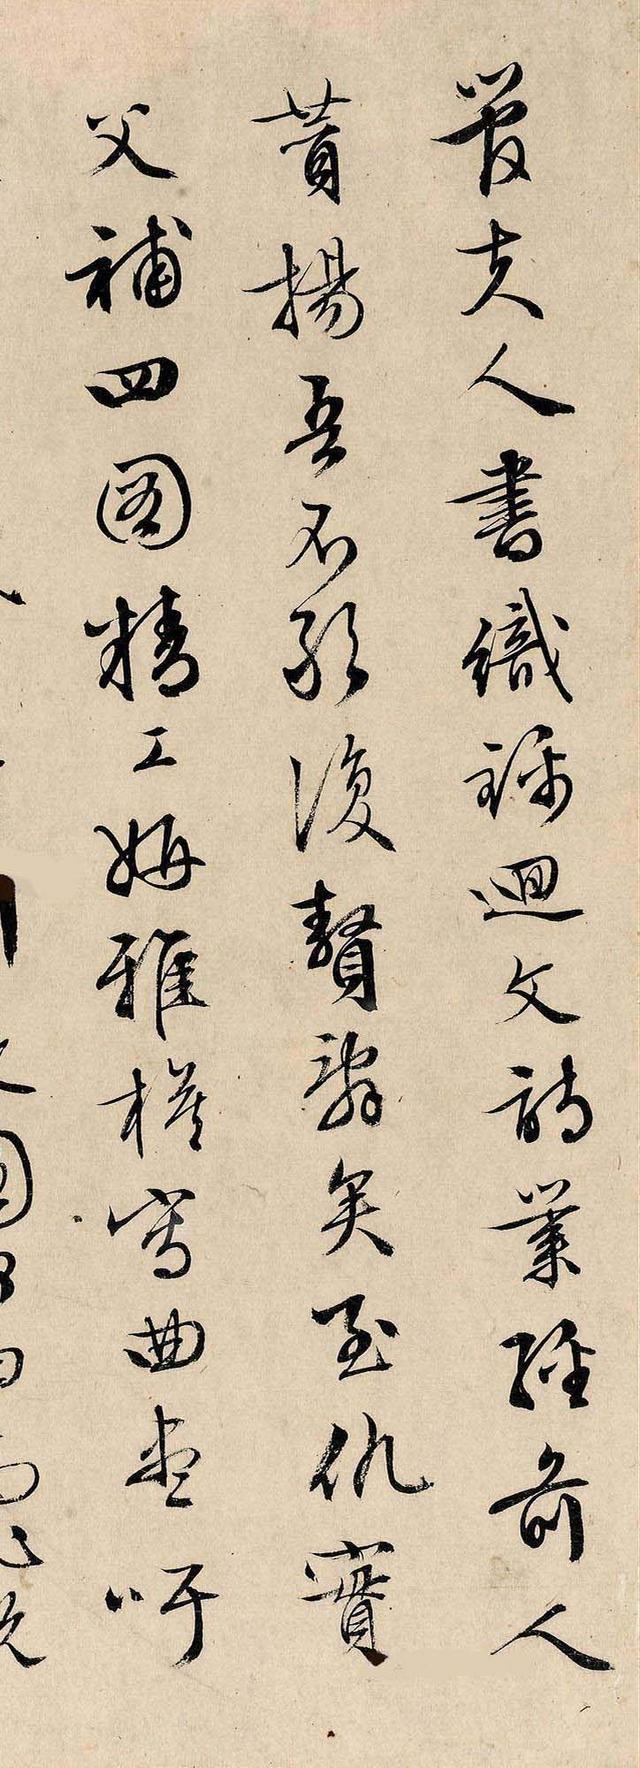 管夫人書織錦迴文詩業經前人
賛揚吾不能復贅辭矣至仇實
父補四圖精工妍雅模寫曲盡吁